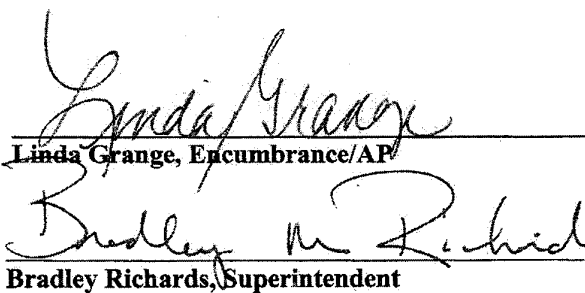 Linda Grange
Linda Grange, Encumbrance/AP
Bradley M Richard
Bradley Richards, Superintendent